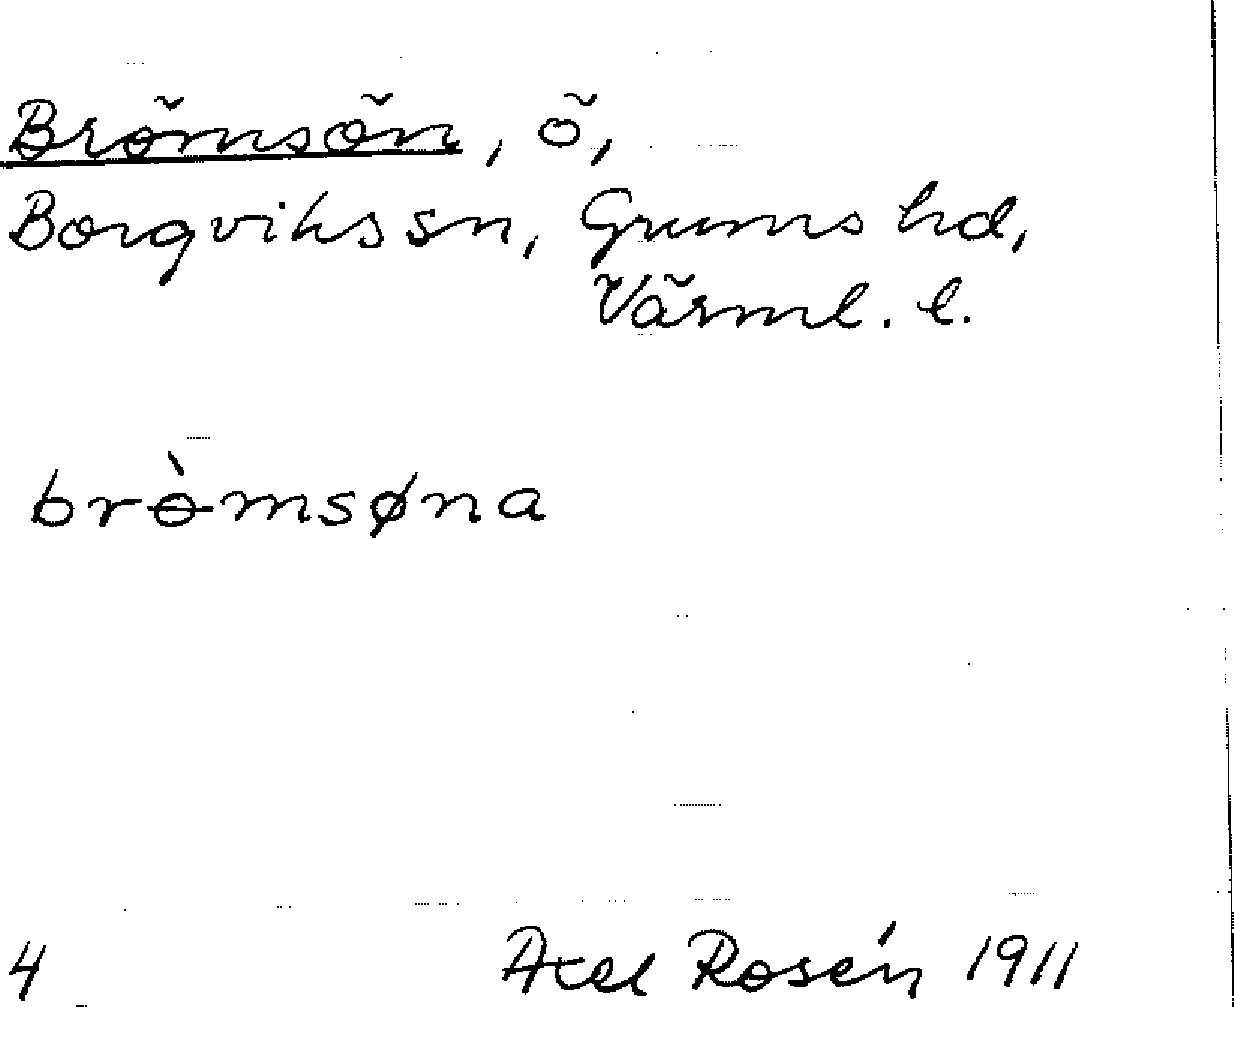 Brömsön, ö,
Borgvikssn, Grums hd,
Värml. l.
brɵ̀msøna
4 Axel Rosén 1911